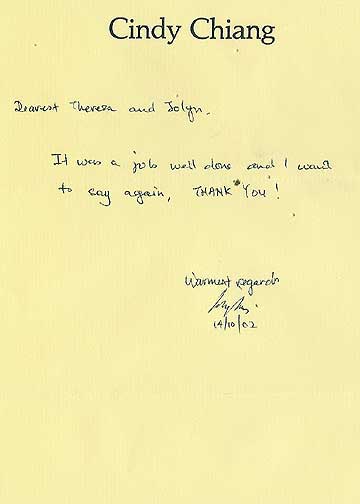 Cindy Chiang
Dearest Theresa and Jolyn,
It was a job well done and I want
to say again, THANK YOU!
Warmest regards
14/10/02